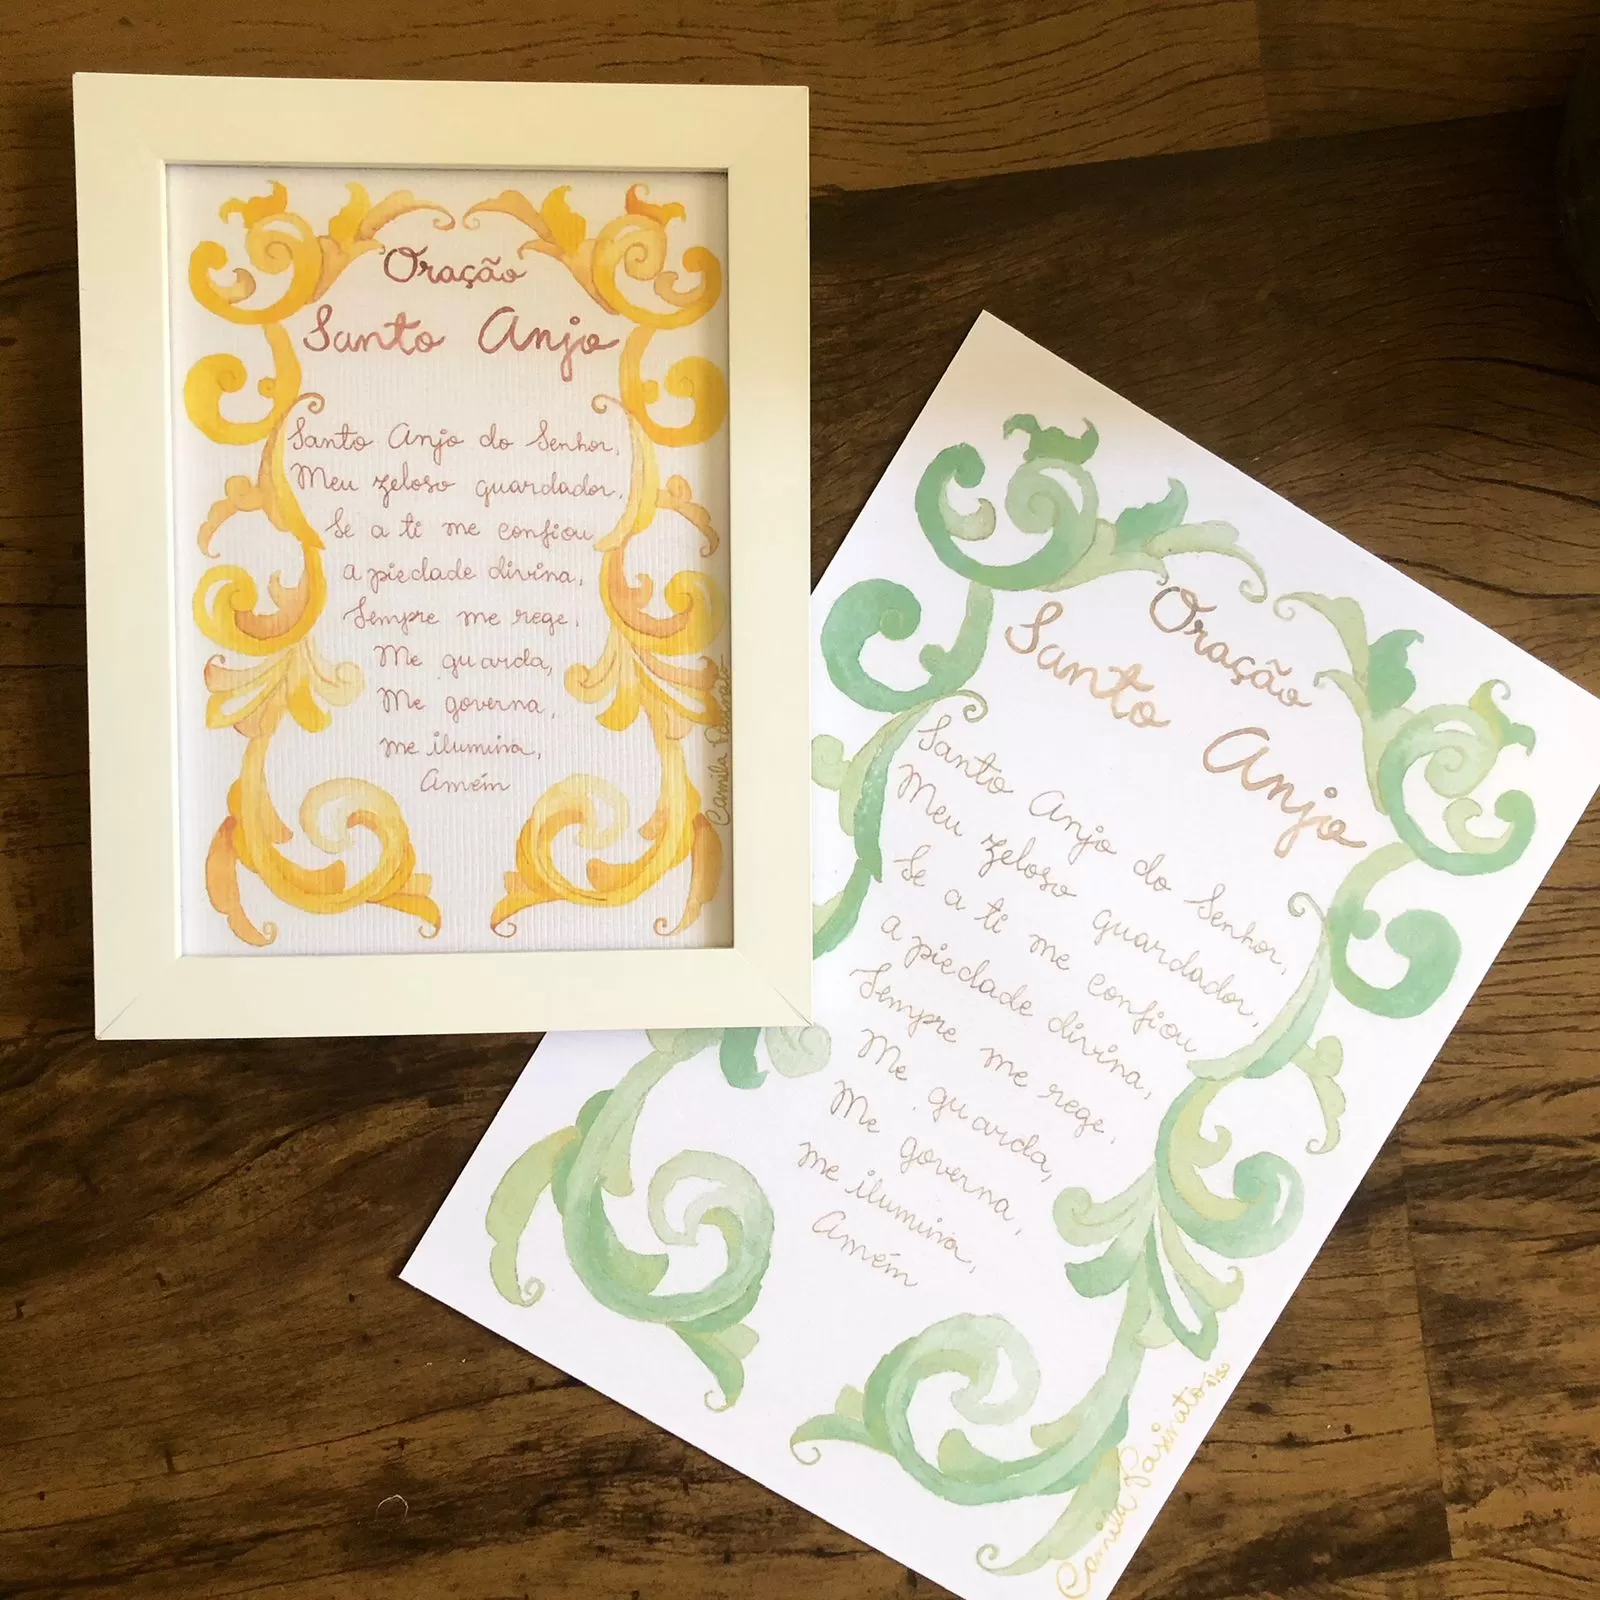 Oração
Santo Anjo
Santo Anjo do Senhor,
Meu zeloso guardador,
Se a ti me confiou
a piedade divina,
Sempre me rege,
Me guarda,
Me governa,
me ilumina,
Amém
Camila Pasinato
Oração
Santo Anjo
Santo Anjo do Senhor,
Meu zeloso guardador,
Se a ti me confiou
a piedade divina,
Sempre me rege,
Me guarda,
Me governa,
me ilumina,
Amém
Camila Pasinato